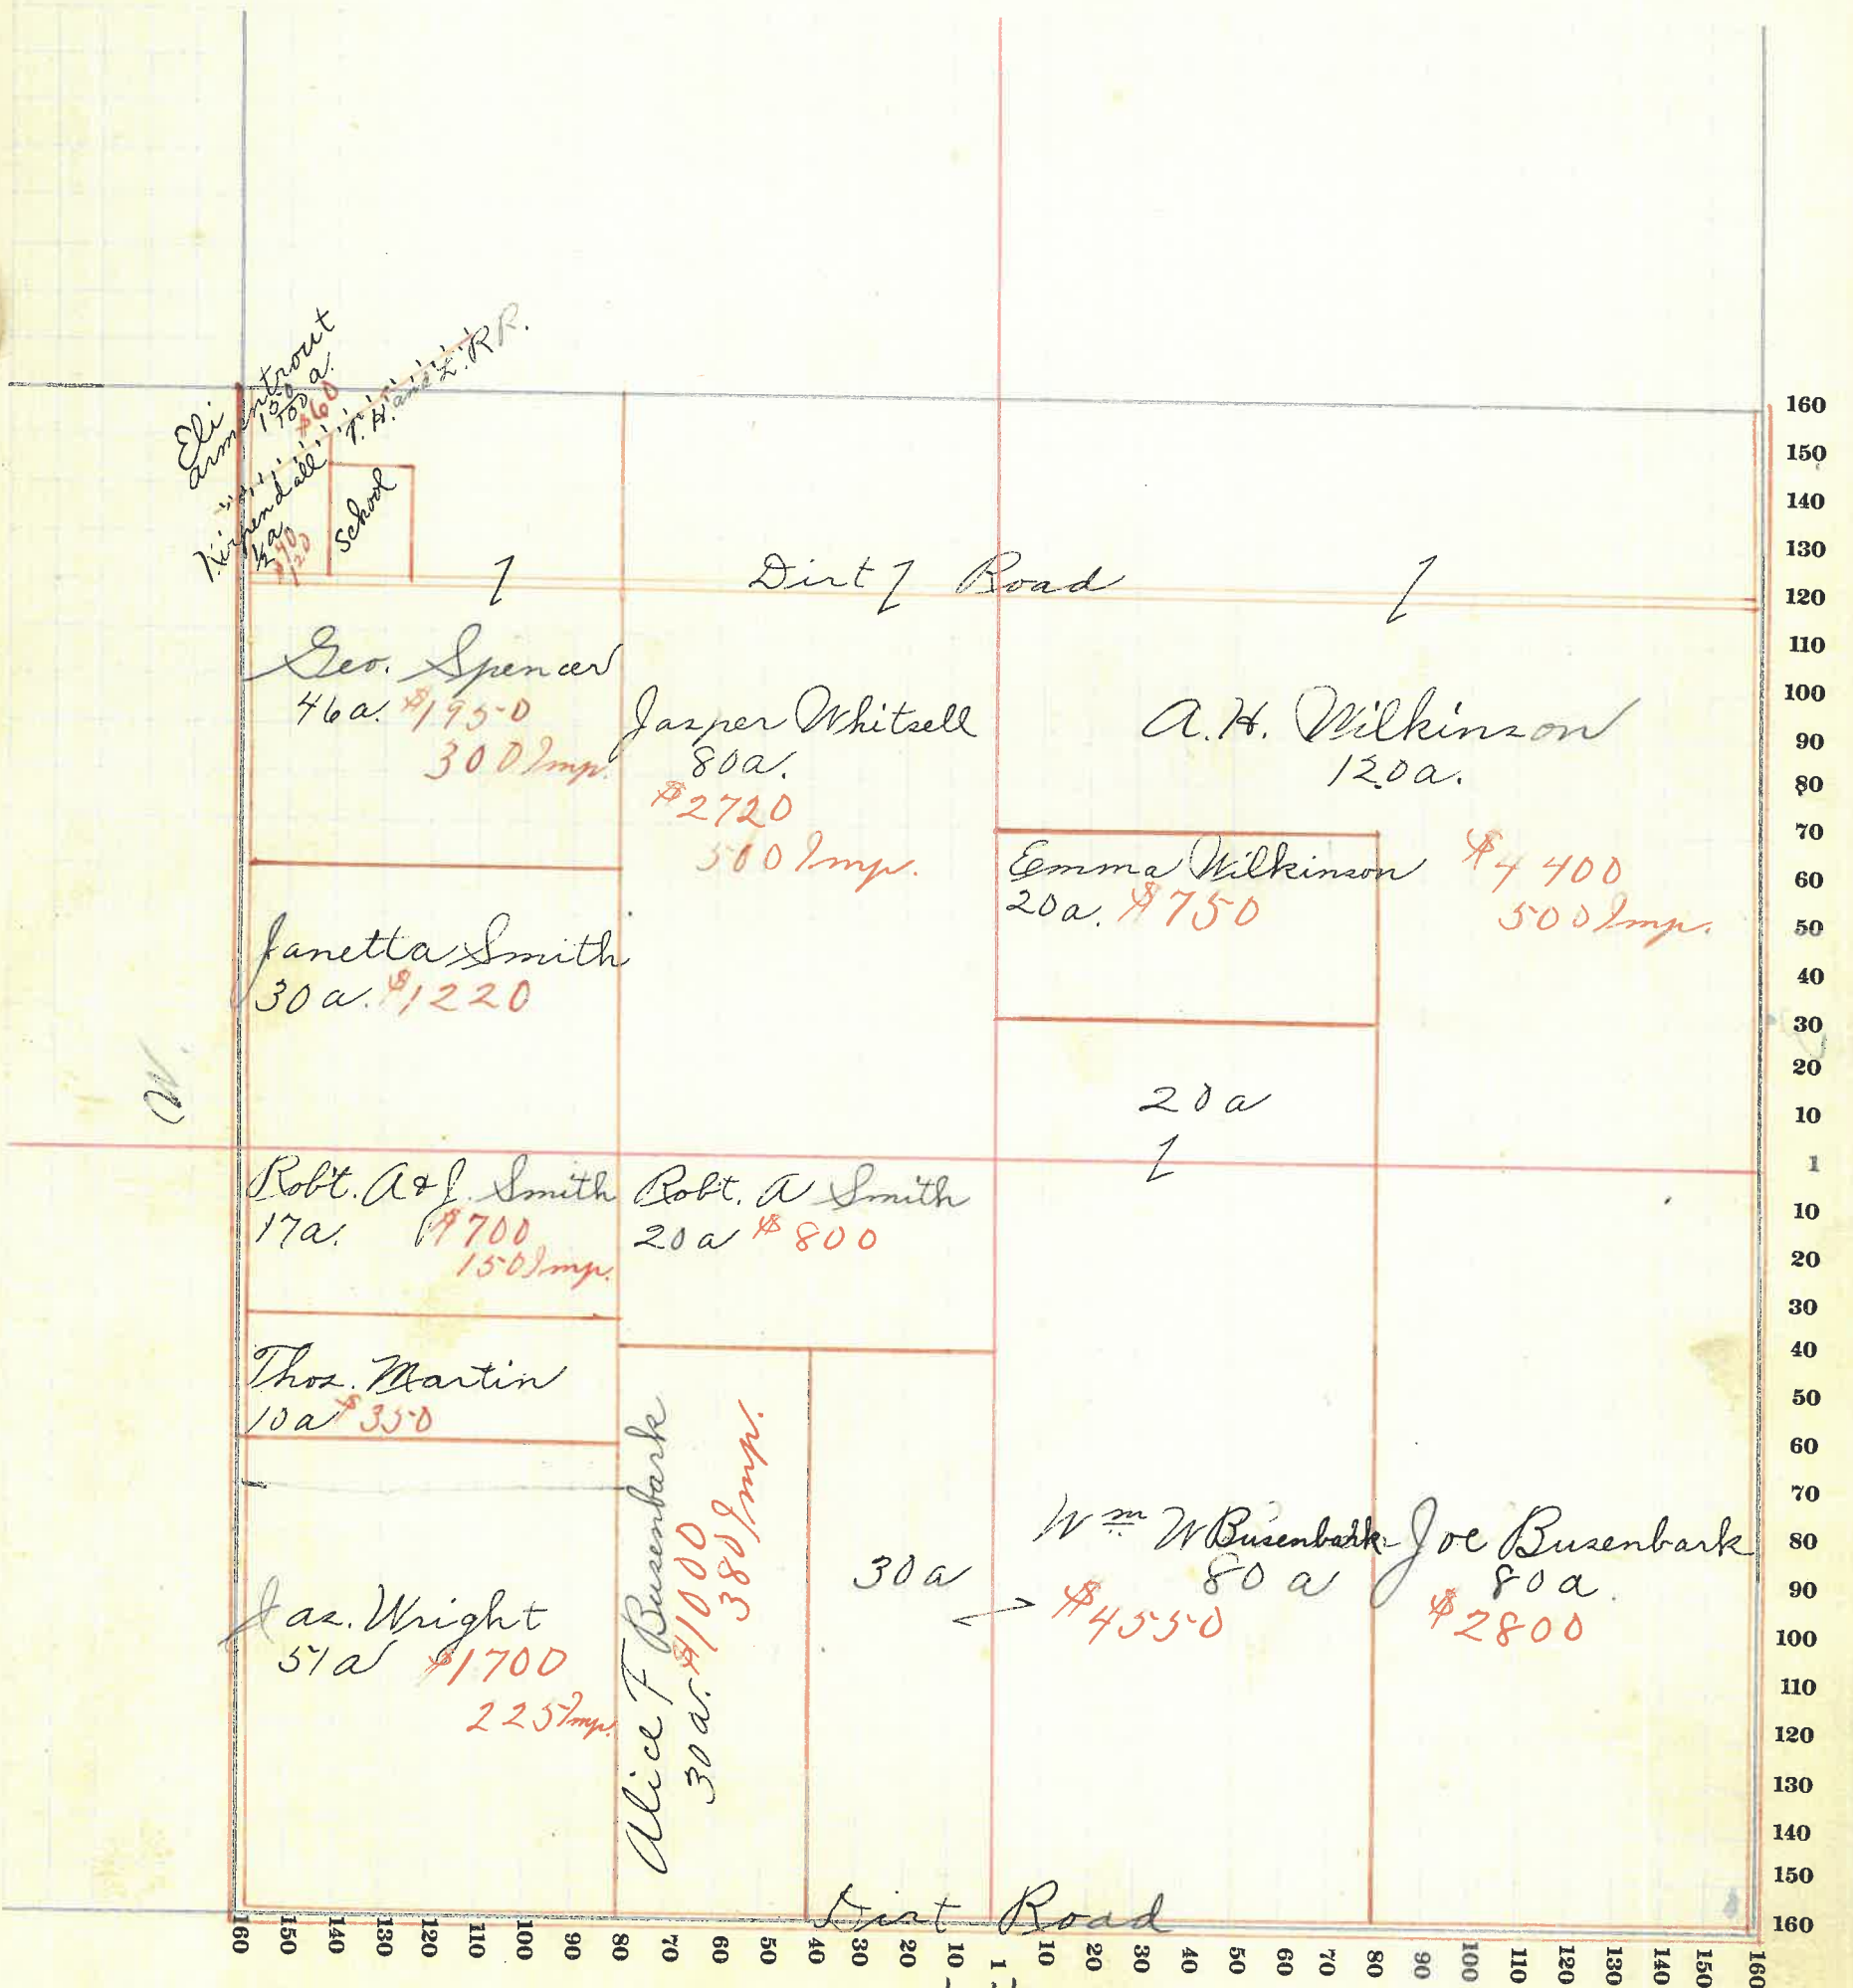 Eli
Armentrout
150/100 a.
$60
T. H. and L. R R.
Kirkendall
½ a
$40
120
School
Dirt Road
Geo. Spencer
46 a. $1950
300 Imp.
Jasper Whitsell
80 a.
$2720
500 Imp.
A. H. Wilkinson
120 a.
$4400
500 Imp.
Emma Wilkinson
20 a. $750
Janetta Smith
30 a. $1220
W.
20 a
Robt. A & J. Smith
17 a. $700
150 Imp.
Robt. A Smith
20 a $800
Thos. Martin
10 a $350
Alice F Busenbark
30 a. $1000
380 Imp.
30 a
Wm W Busenbark
80 a
$4550
Joe Busenbark
80 a.
$2800
Jas. Wright
51 a $1700
225 Imp.
Dirt Road
160
150
140
130
120
110
100
90
80
70
60
50
40
30
20
10
1
10
20
30
40
50
60
70
80
90
100
110
120
130
140
150
160
160 150 140 130 120 110 100 90 80 70 60 50 40 30 20 10 1 10 20 30 40 50 60 70 80 90 100 110 120 130 140 150 160